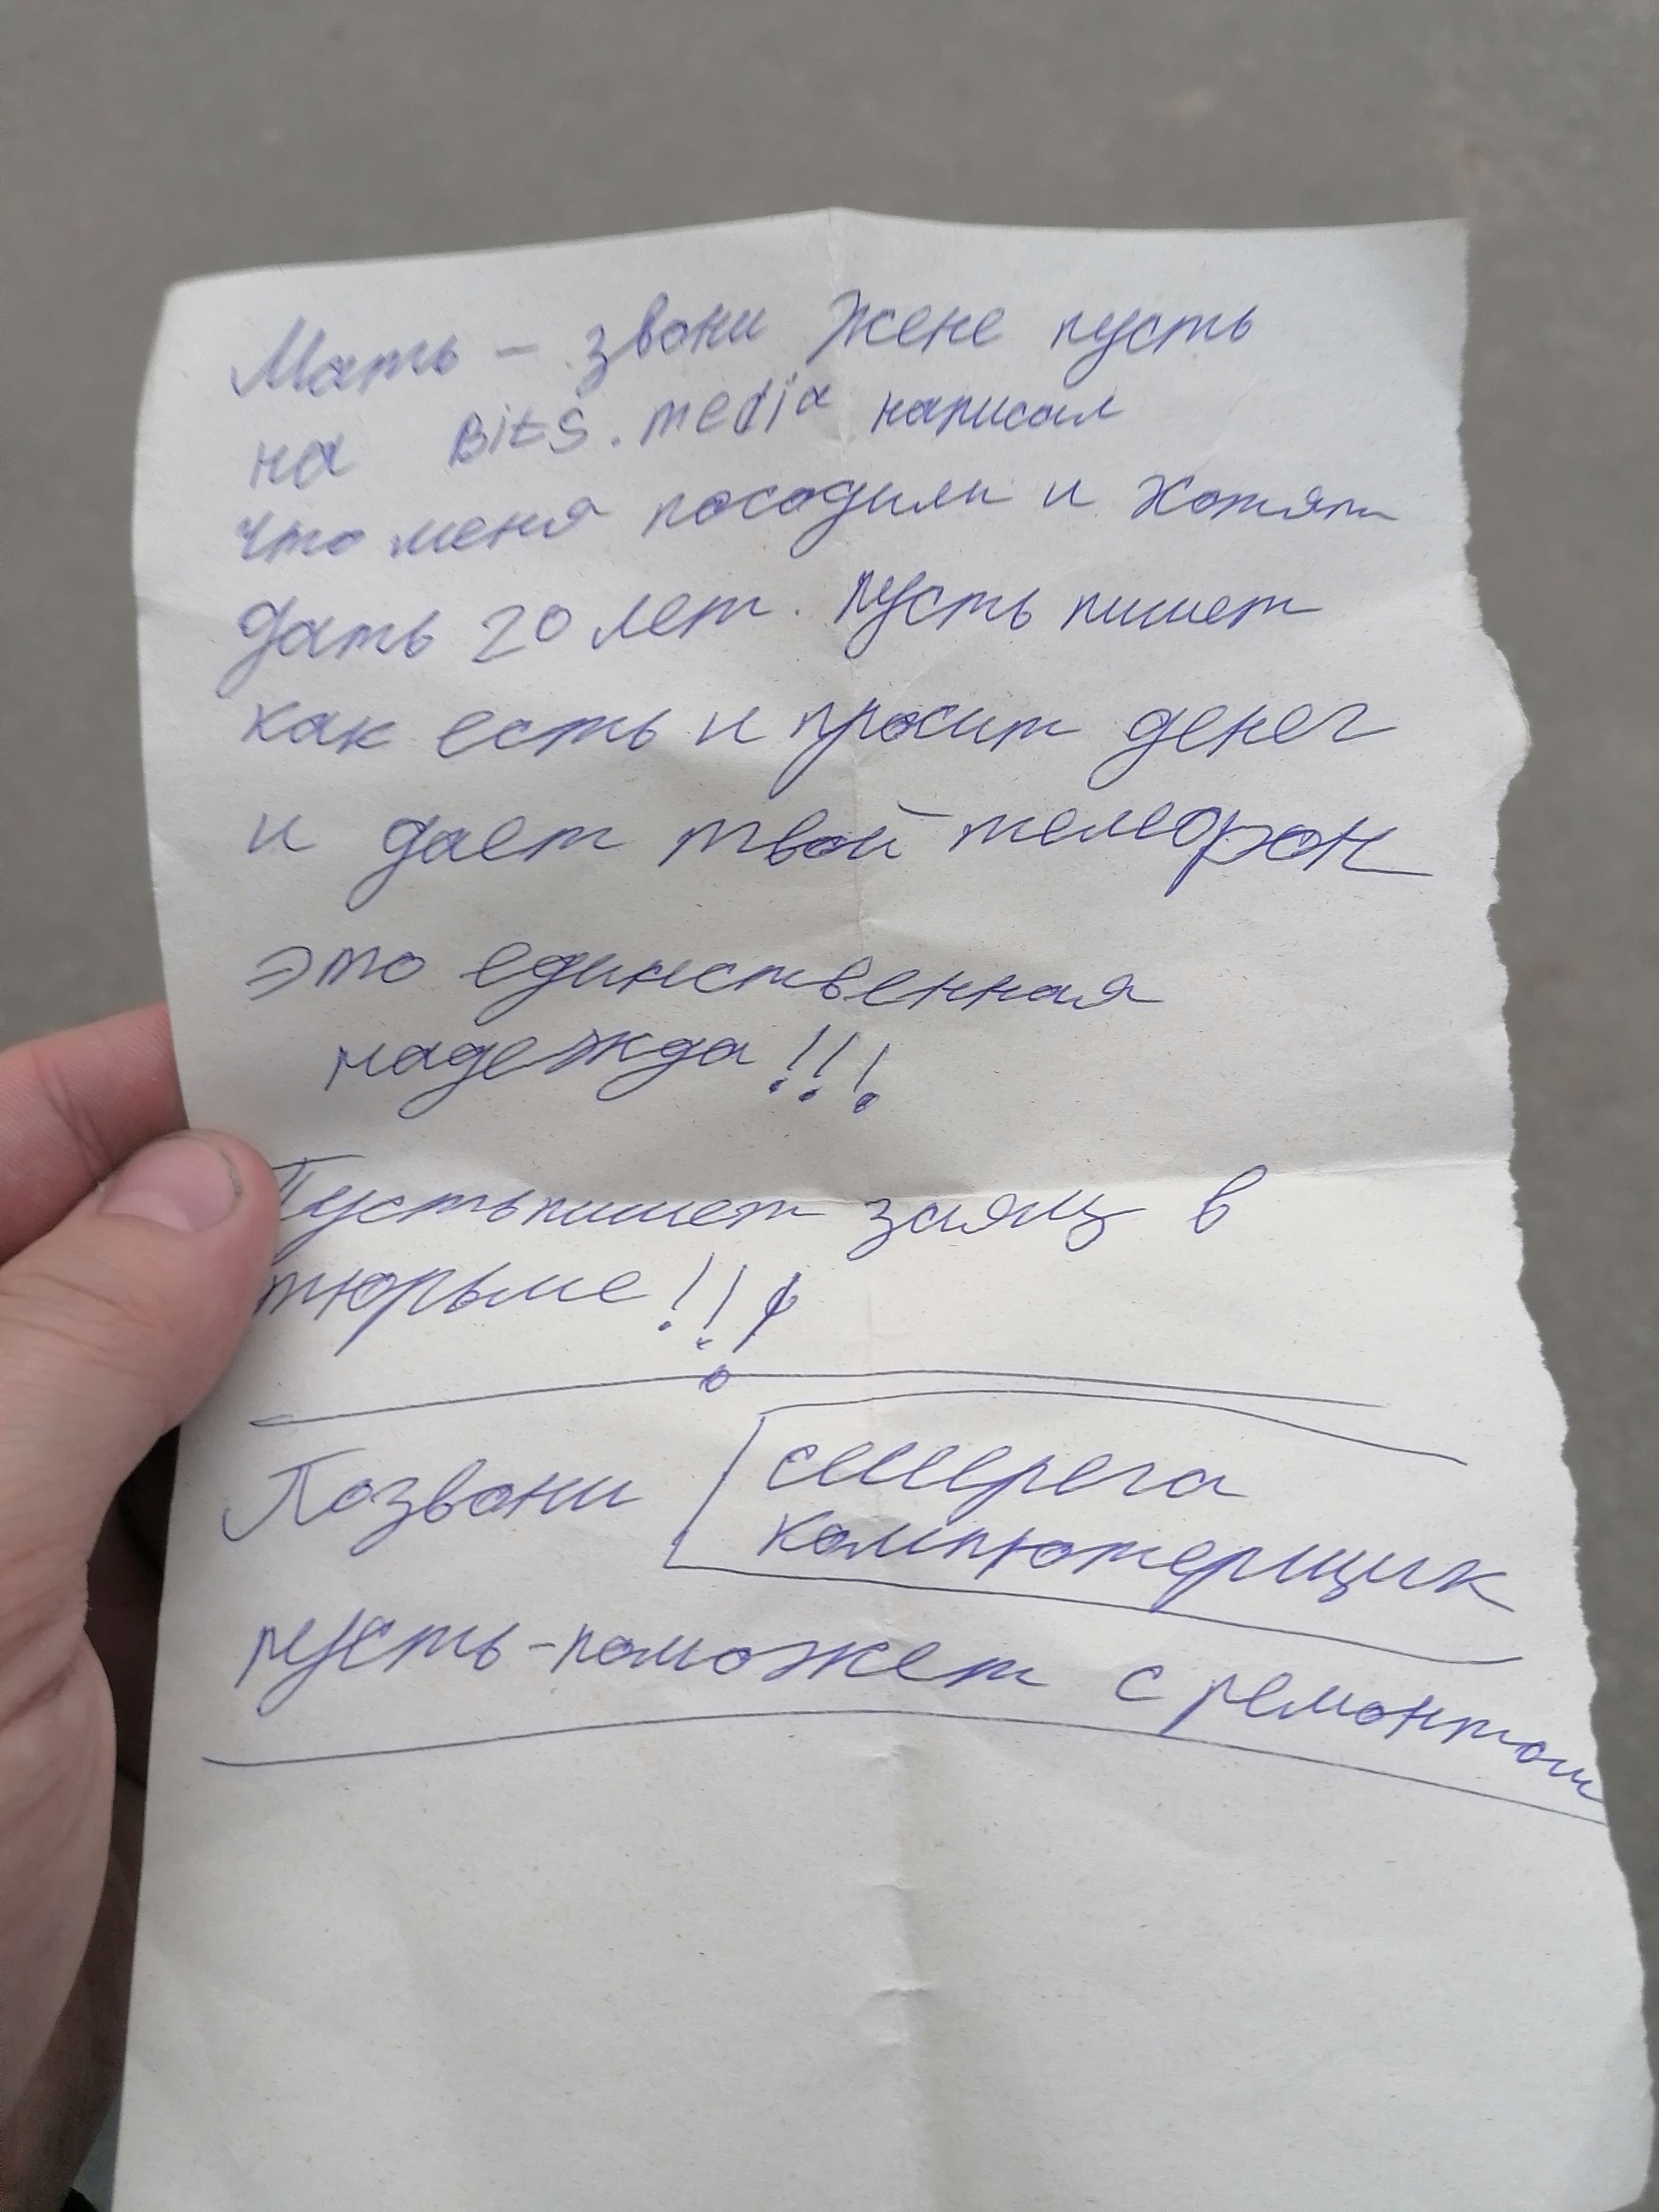 Мать – звони Жене пусть
на Bits.media написал
что меня посадили и хотят
дать 20 лет. пусть пишет
как есть и просит денег
и дает твой телефон
это единственная
надежда!!!
Пусть пишет заяц в
тюрьме!!!
Позвони
компютерщик
пусть-поможет с ремонтом